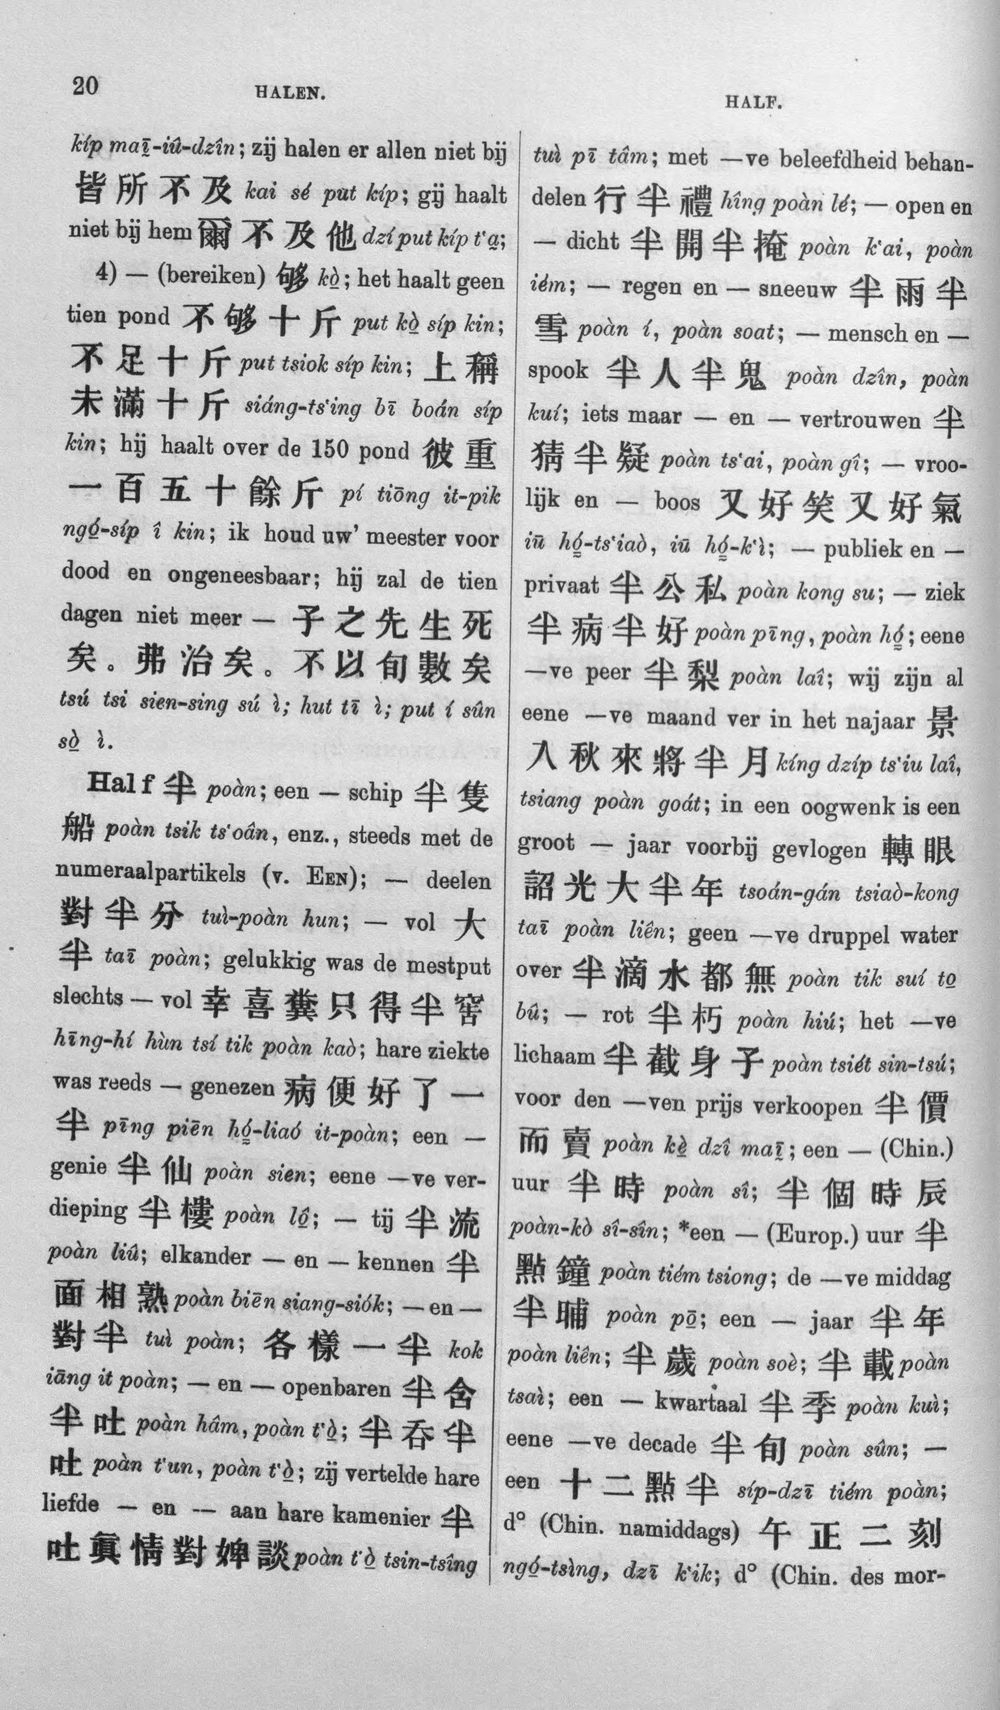 20
HALEN.
HALF.
kíp maī-iû-dzîn; zij halen er allen niet bij
皆所不及 kai sé put kíp; gij haalt
niet bij hem 爾不及他 dzí put kíp t‘a;
4) — (bereiken) 够 kò; het haalt geen
tien pond 不够十斤 put kò síp kin;
不足十斤 put tsiok síp kin; 上稱
未滿十斤 siáng-ts‘ing bī boán síp
kin; hij haalt over de 150 pond 彼重
一百五十餘斤 pí tiōng it-pik
ngó-síp î kin; ik houd uw’ meester voor
dood en ongeneesbaar; hij zal de tien
dagen niet meer — 子之先生死
矣。弗治矣。不以旬數矣
tsú tsi sien-sing sú ì; hut tī ì; put í sûn
sò ì.
Half 半 poàn; een — schip 半隻
船 poàn tsik ts‘oân, enz., steeds met de
numeraalpartikels (v. EEN); — deelen
對半分 tuì-poàn hun; — vol 大
半 taī poàn; gelukkig was de mestput
slechts — vol 幸喜糞只得半窖
hīng-hí hùn tsí tik poàn kaò; hare ziekte
was reeds — genezen 病便好了一
半 pīng piēn hó-liaó it-poàn; een —
genie 半仙 poàn sien; eene —ve ver-
dieping 半樓 poàn lô; — tij 半流
poàn liû; elkander — en — kennen 半
面相熟 poàn biēn siang-siók; — en —
對半 tuì poàn; 各樣一半 kok
iāng it poàn; — en — openbaren 半含
半吐 poàn hâm, poàn t‘ò; 半吞半
吐 poàn t‘un, poàn t‘ò; zij vertelde hare
liefde — en — aan hare kamenier 半
吐眞情對婢談 poàn t‘ò tsin-tsîng
tuì pī tâm; met —ve beleefdheid behan-
delen 行半禮 hîng poàn lé; — open en
— dicht 半開半掩 poàn k‘ai, poàn
iém; — regen en — sneeuw 半雨半
雪 poàn í, poàn soat; — mensch en —
spook 半人半鬼 poàn dzîn, poàn
kuí; iets maar — en — vertrouwen 半
猜半疑 poàn ts‘ai, poàn gî; — vroo-
lijk en — boos 又好笑又好氣
iū hó-ts‘iaò, iū hó-k‘ì; — publiek en —
privaat 半公私 poàn kong su; — ziek
半病半好 poàn pīng, poàn hó; eene
—ve peer 半梨 poàn laî; wij zijn al
eene —ve maand ver in het najaar 景
入秋來將半月 kíng dzíp ts‘iu laî,
tsiang poàn goát; in een oogwenk is een
groot — jaar voorbij gevlogen 轉眼
韶光大半年 tsoán-gán tsiaò-kong
taī poàn liên; geen —ve druppel water
over 半滴水都無 poàn tik suí to
bû; — rot 半朽 poàn hiú; het —ve
lichaam 半截身子 poàn tsiét sin-tsú;
voor den —ven prijs verkoopen 半價
而賣 poàn kè dzî maī; een — (Chin.)
uur 半時 poàn sî; 半個時辰
poàn-kò sî-sîn; *een — (Europ.) uur 半
點鐘 poàn tiém tsiong; de —ve middag
半晡 poàn pō; een — jaar 半年
poàn liên; 半歲 poàn soè; 半載 poàn
tsaì; een — kwartaal 半季 poàn kuì;
eene —ve decade 半旬 poàn sûn; —
een 十二點半 síp-dzī tiém poàn;
d° (Chin. namiddags) 午正二刻
ngó-tsìng, dzī k‘ik; d° (Chin. des mor-